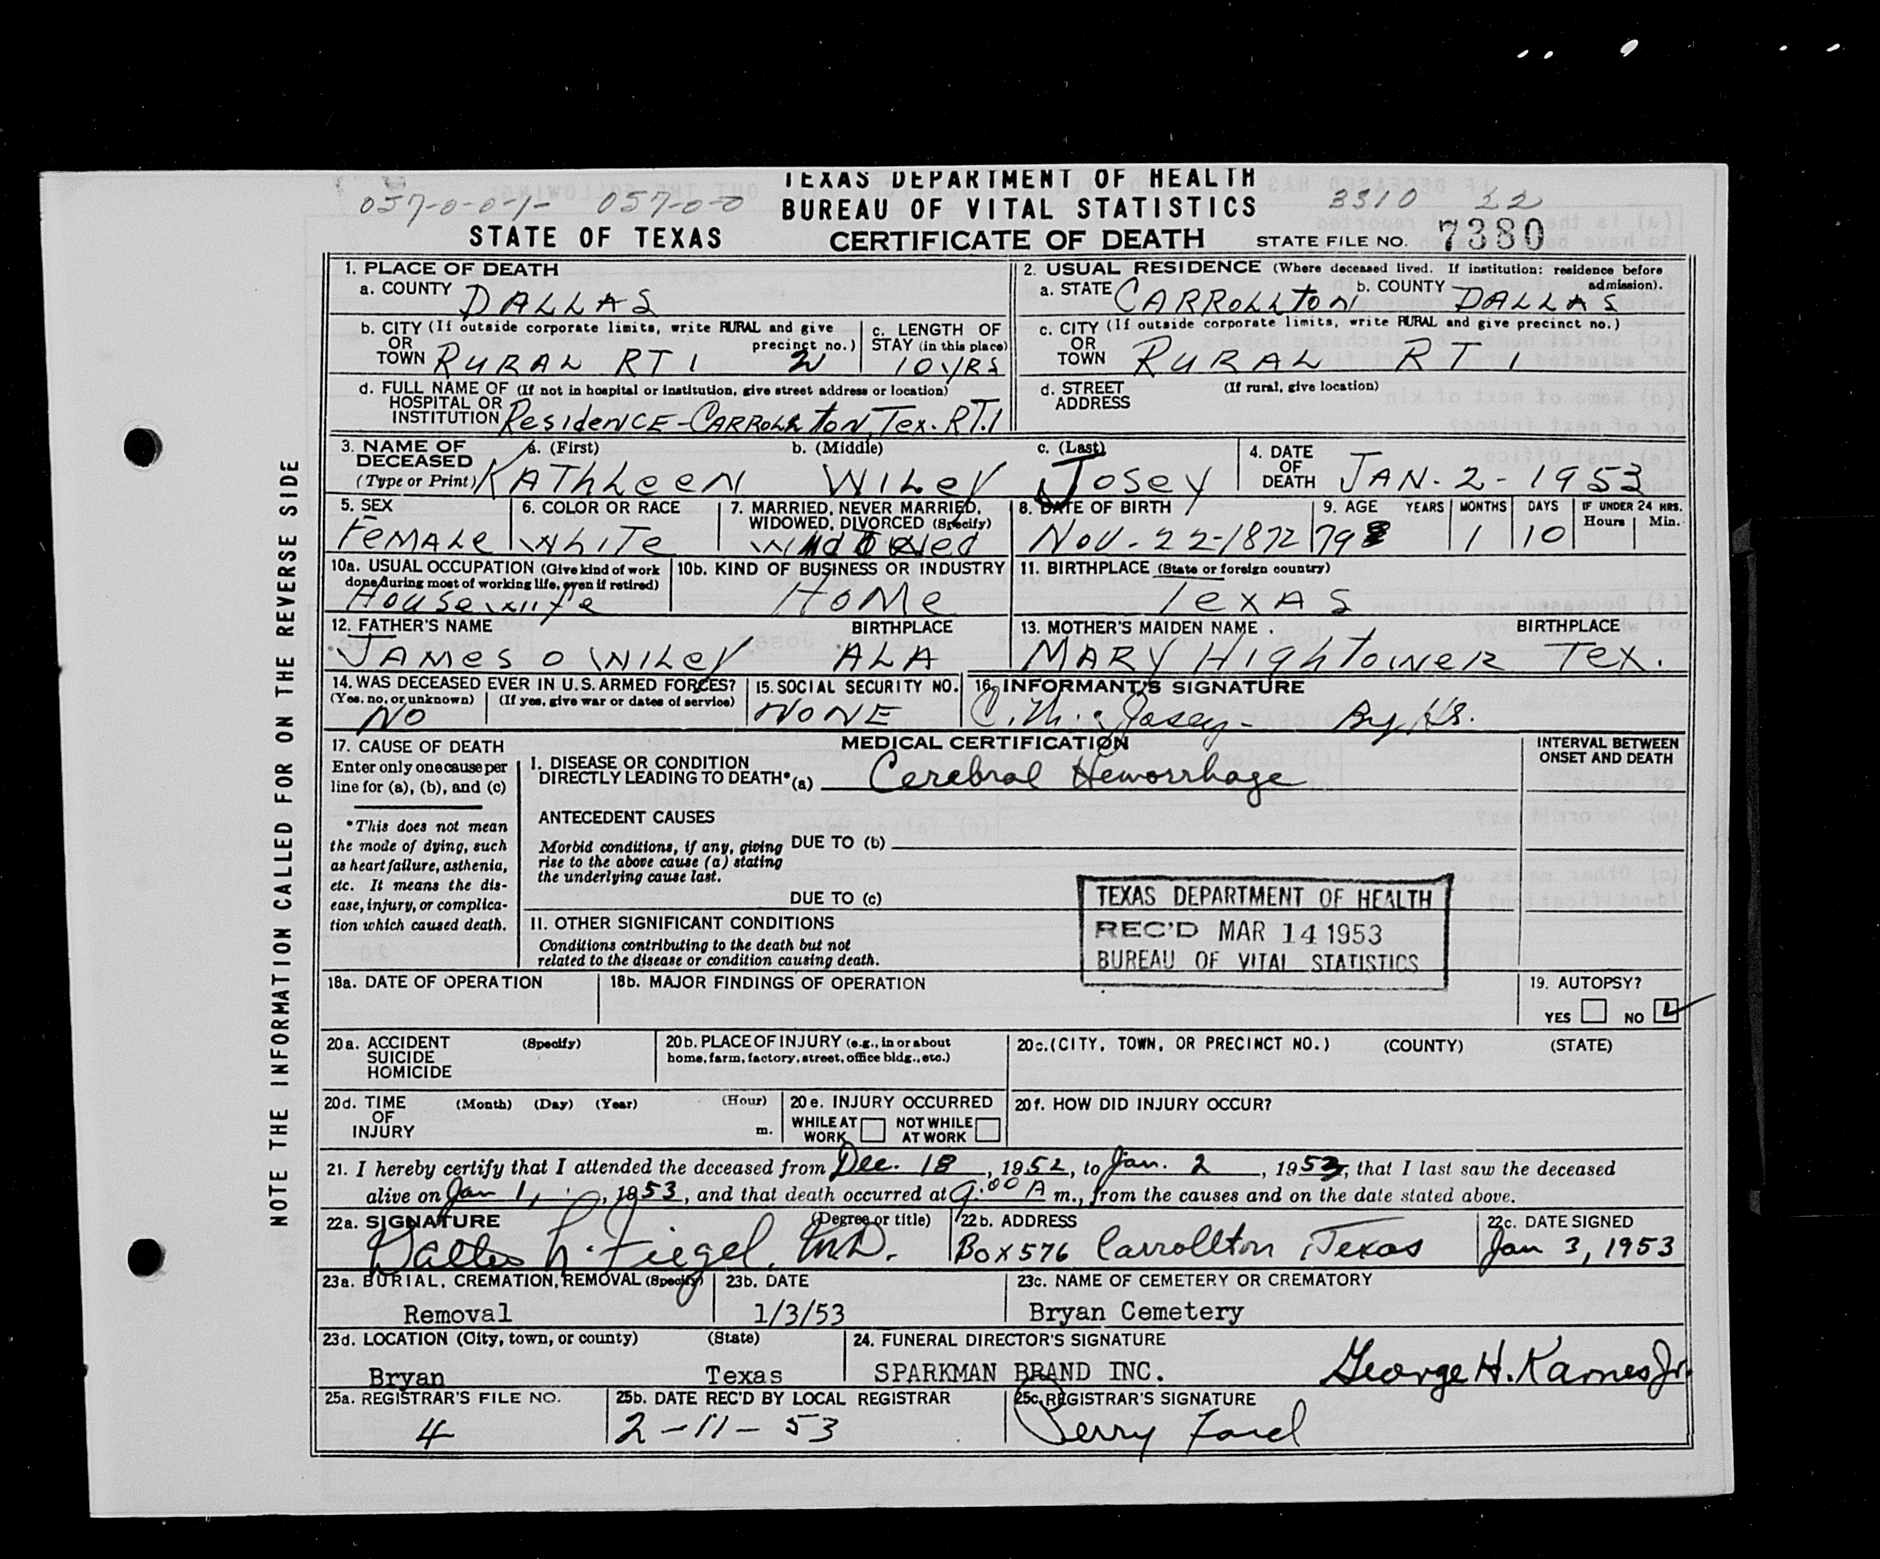 TEXAS DEPARTMENT OF HEALTH
057-0-0-1- 057-0-0 BUREAU OF VITAL STATISTICS 3310 22
STATE OF TEXAS CERTIFICATE OF DEATH STATE FILE NO. 7380
NOTE THE INFORMATION CALLED FOR ON THE REVERSE SIDE
1. PLACE OF DEATH
a. COUNTY DALLAS
2. USUAL RESIDENCE (Where deceased lived. If institution: residence before admission).
a. STATE CARROLLTON b. COUNTY DALLAS
b. CITY OR TOWN (If outside corporate limits, write RURAL and give precinct no.) RURAL RT 1 2
c. LENGTH OF STAY (in this place) 10 YRS
c. CITY OR TOWN (If outside corporate limits, write RURAL and give precinct no.) RURAL RT 1
d. FULL NAME OF HOSPITAL OR INSTITUTION (If not in hospital or institution, give street address or location) Residence - CARROLLTON, Tex. RT. 1
d. STREET ADDRESS (If rural, give location)
3. NAME OF DECEASED (Type or Print) a. (First) b. (Middle) c. (Last)
KATHLEEN WILEY JOSEY
4. DATE OF DEATH JAN. 2 - 1953
5. SEX FEMALE
6. COLOR OR RACE WHITE
7. MARRIED, NEVER MARRIED, WIDOWED, DIVORCED (Specify) Widowed
8. DATE OF BIRTH Nov. - 22 - 1872
9. AGE YEARS MONTHS DAYS IF UNDER 24 HRS. Hours Min.
79 1 10
10a. USUAL OCCUPATION (Give kind of work done during most of working life, even if retired) Housewife
10b. KIND OF BUSINESS OR INDUSTRY HOME
11. BIRTHPLACE (State or foreign country) TEXAS
12. FATHER'S NAME BIRTHPLACE
JAMES O WILEY ALA
13. MOTHER'S MAIDEN NAME. BIRTHPLACE
MARY HIGHTOWER TEX.
14. WAS DECEASED EVER IN U.S. ARMED FORCES? (Yes, no, or unknown) (If yes, give war or dates of service) NO
15. SOCIAL SECURITY NO. NONE
16. INFORMANT'S SIGNATURE Josey - By
MEDICAL CERTIFICATION
17. CAUSE OF DEATH
Enter only one cause per line for (a), (b), and (c)
*This does not mean the mode of dying, such as heart failure, asthenia, etc. It means the disease, injury, or complication which caused death.
I. DISEASE OR CONDITION DIRECTLY LEADING TO DEATH* (a) Cerebral Hemorrhage
ANTECEDENT CAUSES
Morbid conditions, if any, giving rise to the above cause (a) stating the underlying cause last.
DUE TO (b)
DUE TO (c)
II. OTHER SIGNIFICANT CONDITIONS
Conditions contributing to the death but not related to the disease or condition causing death.
INTERVAL BETWEEN ONSET AND DEATH
TEXAS DEPARTMENT OF HEALTH
REC'D MAR 14 1953
BUREAU OF VITAL STATISTICS
18a. DATE OF OPERATION
18b. MAJOR FINDINGS OF OPERATION
19. AUTOPSY?
YES NO
20a. ACCIDENT SUICIDE HOMICIDE (Specify)
20b. PLACE OF INJURY (e.g., in or about home, farm, factory, street, office bldg., etc.)
20c. (CITY, TOWN, OR PRECINCT NO.) (COUNTY) (STATE)
20d. TIME OF INJURY (Month) (Day) (Year) (Hour) m.
20e. INJURY OCCURRED
WHILE AT WORK NOT WHILE AT WORK
20f. HOW DID INJURY OCCUR?
21. I hereby certify that I attended the deceased from Dec. 18, 1952, to Jan. 2, 1953, that I last saw the deceased
alive on Jan 1, 1953, and that death occurred at 9:00 A m., from the causes and on the date stated above.
22a. SIGNATURE (Degree or title) Fiegel, M.D.
22b. ADDRESS Box 576 Carrollton, Texas
22c. DATE SIGNED Jan 3, 1953
23a. BURIAL, CREMATION, REMOVAL (Specify) Removal
23b. DATE 1/3/53
23c. NAME OF CEMETERY OR CREMATORY Bryan Cemetery
23d. LOCATION (City, town, or county) (State)
Bryan Texas
24. FUNERAL DIRECTOR'S SIGNATURE
SPARKMAN BRAND INC. George H. Karnes Jr.
25a. REGISTRAR'S FILE NO. 4
25b. DATE REC'D BY LOCAL REGISTRAR 2-11-53
25c. REGISTRAR'S SIGNATURE Perry Ford